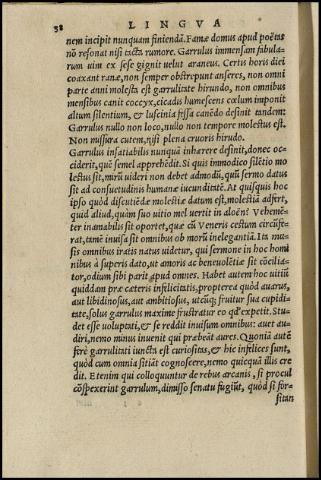 38 LINGVA
nem incipit nunquam finiendã. Famæ domus apud poëtas
nõ resonat nisi tacta rumore. Garrulus immensam fabula-
rum uim ex sese gignit uelut araneus. Certis horis diei
coaxant ranæ, non semper obstrepunt anseres, non omni
parte anni molesta est garrulitate hirundo, non omnibus
mensibus canit coccyx, cicadis humescens cœlum imponit
altum silentium, & luscinia fissa canẽdo definit tandem:
Garrulus nullo non loco, nullo non tempore molestus est.
Non missura cutem, nisi plena cruoris hirudo.
Garrulus insatiabilis nunquā inhærere definit, donec oc-
ciderit, quẽ semel apprehẽdit. Si quis immodico silẽtio mo
lectus sit, mirũ uideri non debet admodũ, quũ sermo datus
sit ad consuetudinis humanæ iucunditatẽ. At quisquis hoc
ipso quòd discutiẽdæ molestiæ datum est, molestiã adfert,
quid aliud, quàm suo uitio mel uertit in aloën? Vehemẽ-
ter inamabilis sit oportet, quæ cũ Veneris cestum circũfe-
rat, tamẽ inuisa sit omnibus ob morũ inelegantiã. Ita mu-
sis omnibus iratis natus uidetur, qui sermone in hoc homi
nibus à superis dato, ut amoris ac beneuolẽtiæ sit cõcilia-
tor, odium sibi parit apud omnes. Habet autem hoc uitiũ
quiddam præ cæteris infelicitatis, propterea quòd auarus,
aut libidinosus, aut ambitiosus, utcũq; fruitur sua cupidi-
tate, solus garrulus maxime frustratur eo qd' expetit. Stu-
det esse uoluptati, & se reddit inuisum omnibus: auet au-
diri, nemo minus inuenit qui præbeāt aures. Quoniā autẽ
ferè garrulitati iuncta est curiositas, & hic infelices sunt,
quòd cum omnia sitiāt cognoscere, nemo quicquã illis cre
dit. Etenim qui colloquuntur de rebus arcanis, si procul
cõspexerint garrulum, dimisso senatu fugiũt, quòd si for-
sitan